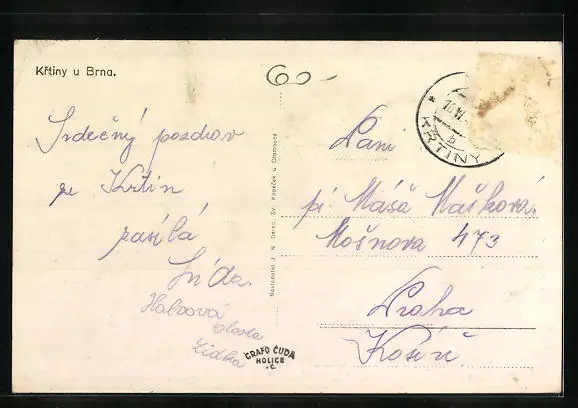 Křtiny u Brna.
60-
Srdečný pozdrav
ze Křtin
zasílá
Lída.
Halasová
Vlasta
Lidka
Nakladatel J. N. Daněc, Sv. Kopeček u Olomouce
GRAFO ČUDA
HOLICE
KŘTINY
b
Paní
pí. Máša Mašková.
Mošnova 473
Praha
Košíř